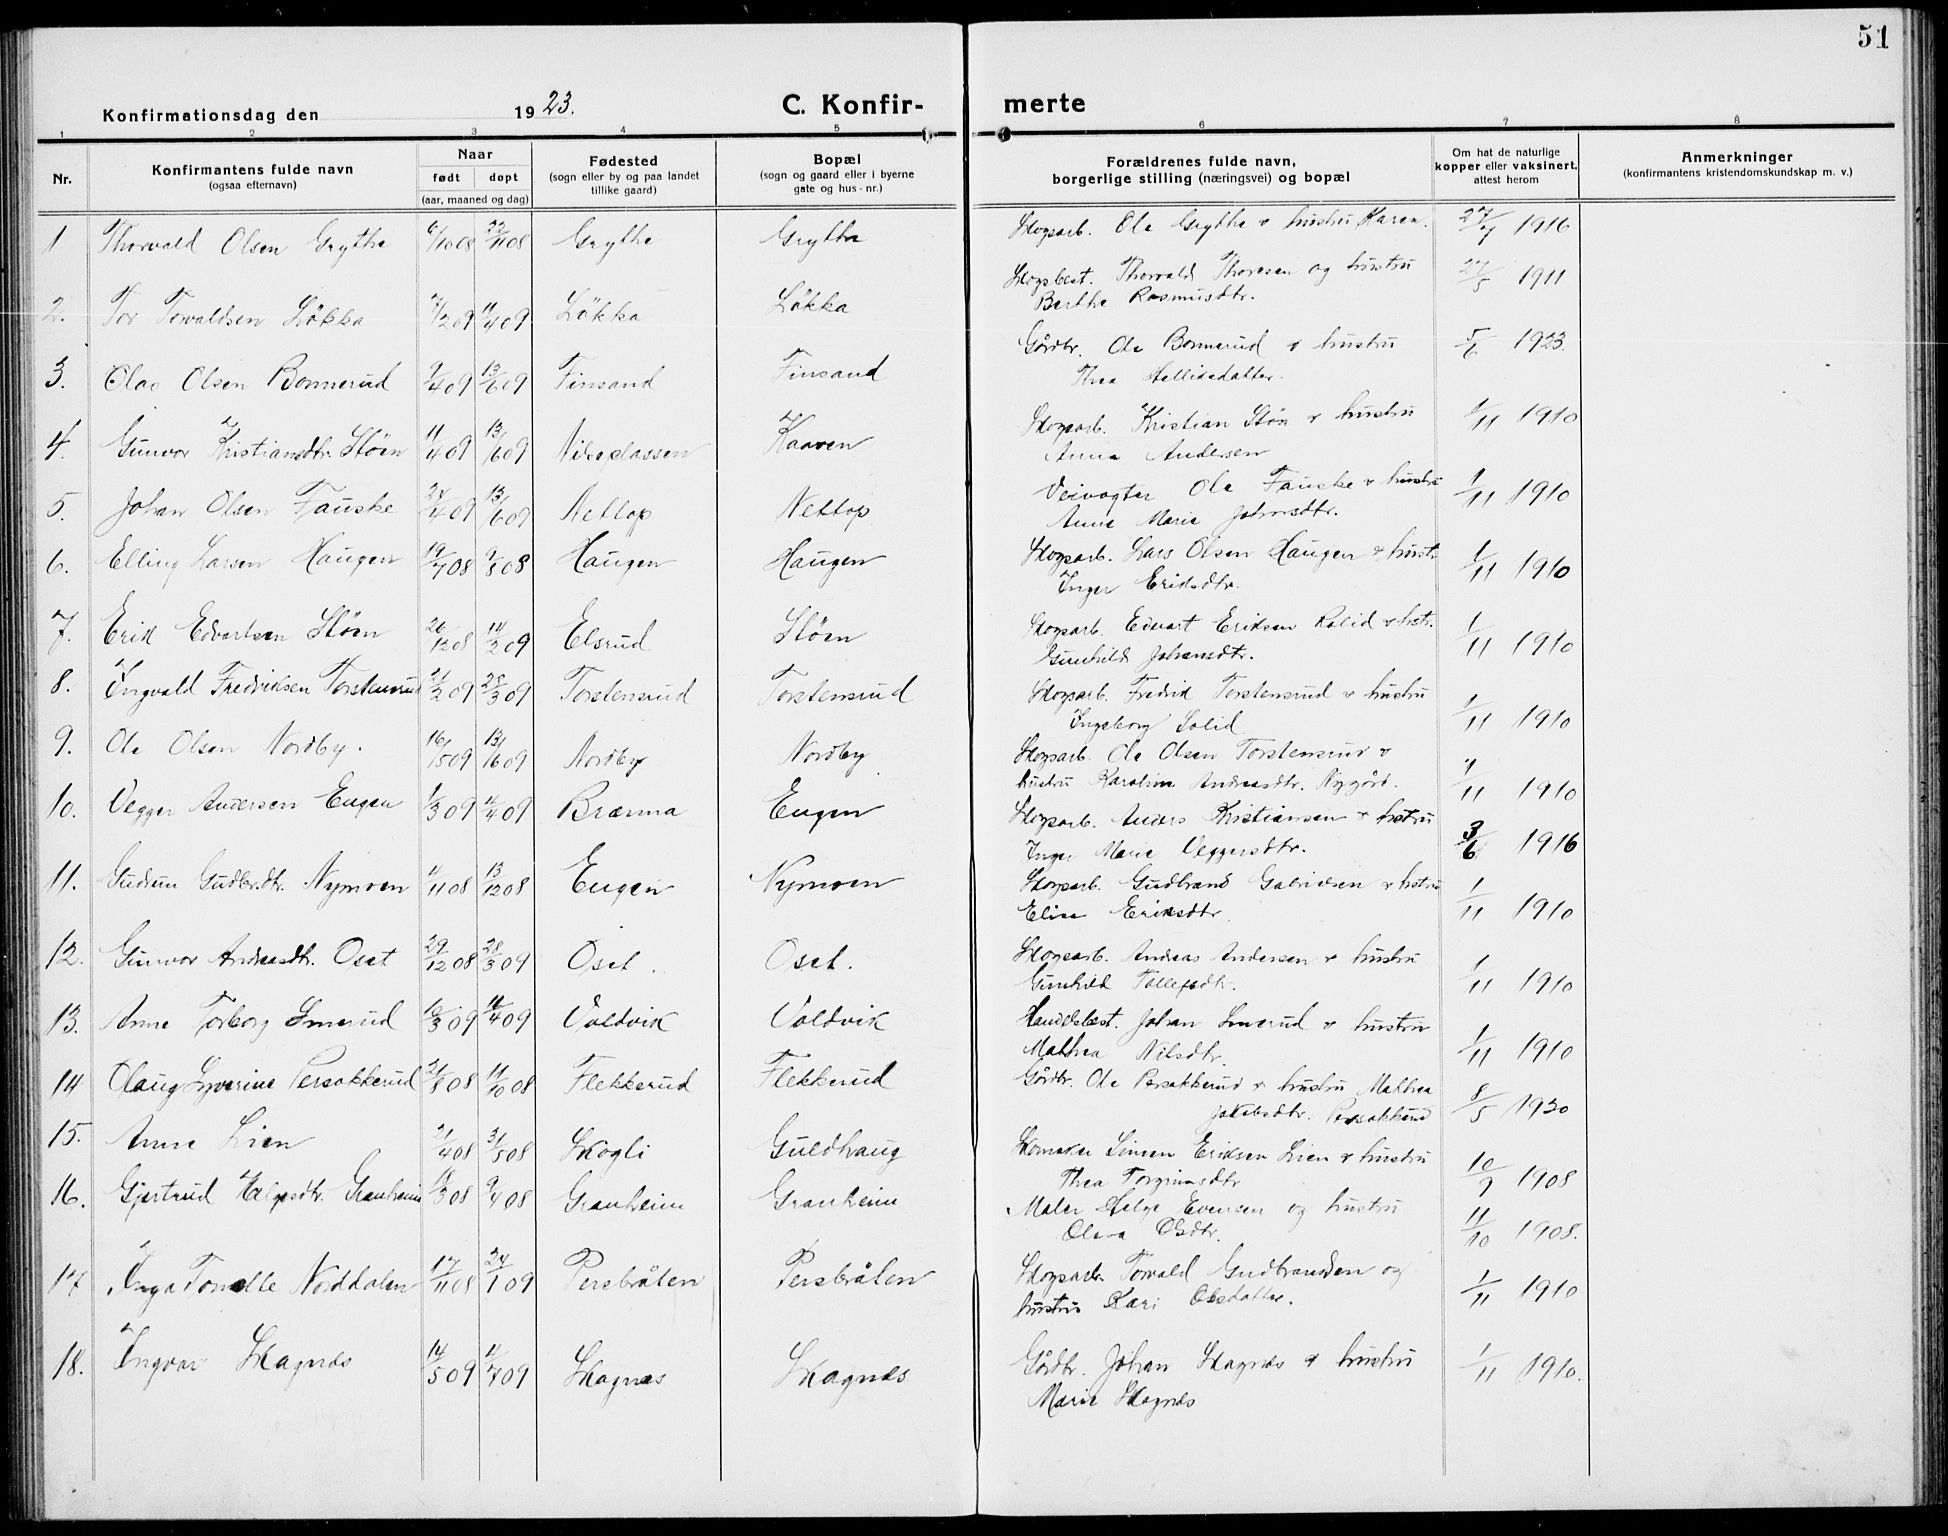 51
Konfirmationsdag den 1923. C. Konfir- merte
1 2 3 4 5 6 7 8
Nr. Konfirmantens fulde navn (ogsaa efternavn) Naar født døpt (aar, maaned og dag) Fødested (sogn eller by og paa landet tillike gaard) Bopæl (sogn og gaard eller i byerne gate og hus-nr.) Forældrenes fulde navn, borgerlige stilling (næringsvei) og bopæl Om hat de naturlige kopper eller vaksinert, attest herom Anmerkninger (konfirmantens kristendomskundskap m. v.)
1 Thorvald Olsen Grythe 6/10 08 22/11 08 Grythe Grythe Skogsarb. Ole Grythe & hustru Karen. 1916
2. Tor Torvaldsen Løkka /2 09 11/4 09 Løkka Løkka Skogsbest. Thorvald Thoresen og hustru 27/5 1911
Berthe Rasmusdtr.
3. Olav Olsen Bonnerud 9/4 09 13/6 09 Finsand Finsand Gårdbr. Ole Bonnerud & hustru 5/6 1923.
Thea Helliksdatter.
4. Gunvor Kristiansdtr. Støen 11/4 09 13/6 09 Nilseplassen Kaaven Skogsarb. Kristian Støn & hustru 1/11 1910
Anna Andersen
5. Johan Olsen Fauske 24/4 09 13/6 09 Nettop Nettop Veivogter Ole Fauske & hustru 1/11 1910
Anne Marie Johansdtr.
6. Elling Larsen Haugen 19/7 08 9/8 08 Haugen Haugen Skogsarb. Lars Olsen Haugen & hustr. 1/11 1910
Inger Eriksdtr.
7. Erik Edvartsen Støen 26/12 08 14/2 09 Elsrud Støen Skogsarb. Edvart Eriksen Rolid & hstr. 1/11 1910
Gunhild Johansdtr.
8. Ingvald Fredriksen Torstensrud 21/2 09 28/3 09 Torstensrud Torstensrud Skogsarb. Fredrik Torstensrud & hustru 1/11 1910
Ingeborg Solid
9. Ole Olsen Nordby. 16/5 09 13/6 09 Nordby Nordby Skogsarb. Ole Olsen Torstensrud &
hustru Karoline Andreasdtr. Nygård. 1/11 1910
10. Vegger Andersen Eugen 1/3 09 11/4 09 Brænna Eugen Skogsarb. Anders Kristiansen & hstru
Inger Marie Veggersdtr. 3/6 1916
11. Gudrun Gudbr.dtr. Nymoen 11/11 08 13/12 08 Eugen Nymoen Skogsarb. Gudbrand Gabrielsen & hstru
Elise Eriksdtr. 1/11 1910
12. Gunvor Andreasdtr. Oset 29/12 08 28/3 09 Oset. Oset. Skogsarb. Andreas Andersen & hustru
Gunhild Tollefsdtr. 1/11 1910
13. Anne Torborg Smerud /3 09 /4 09 Voldvik Voldvik Handelsbest. Johan Smerud & hustru
Mathea Nilsdtr. 1/11 1910
14 Olaug Syverine Persokkerud 21/8 08 11/10 08 Flekkerud Flekkerud Gårdbr. Ole Persokkerud & hustru Mathea
Jakobsdtr. Persokkerud 8/5 1920
15. Anne Lien 21/4 08 31/5 08 Skogli Guldhaug Skomaker Simen Eriksen Lien & hustru
Thea Torgrimsdtr 10/9 1908
16. Gjertrud Helgesdtr. Granheim 18/3 08 9/4 08 Granheim Granheim Maler Helge Evensen og hustru
Olava Olsdtr. 11/10 1908.
17 Inga Tomelle Norddalen 17/11 08 24/1 09 Persbråten Persbråten Skogsarb. Torvald Gudbrandsen og
hustru Kari Olsdatter. 1/11 1910
18. Ingvar Skagnæs 14/5 09 11/7 09 Skagnæs Skagnæs Gårdbr. Johan Skagnæs & hustru 1/11 1910.
Marie Skagnæs